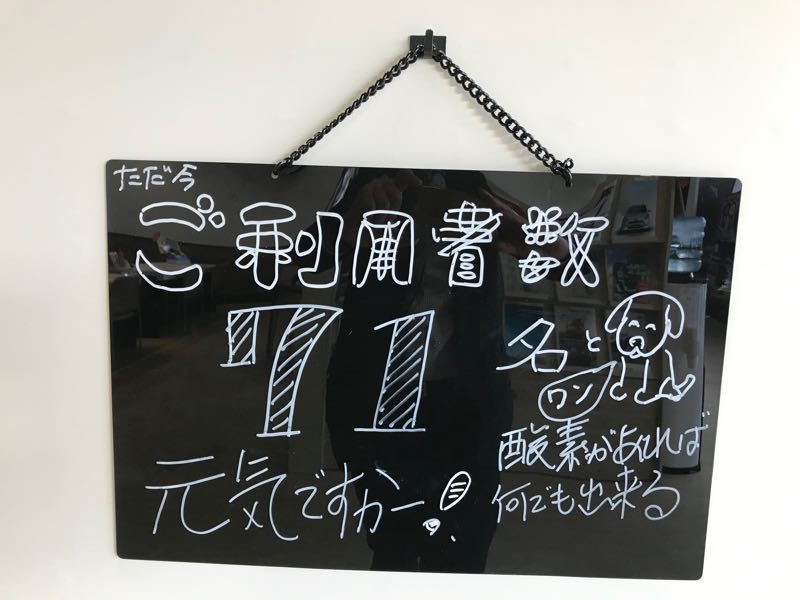 ただ今
ご利用者数
71名と
ワン
元気ですかー!
酸素があれば
何でも出来る